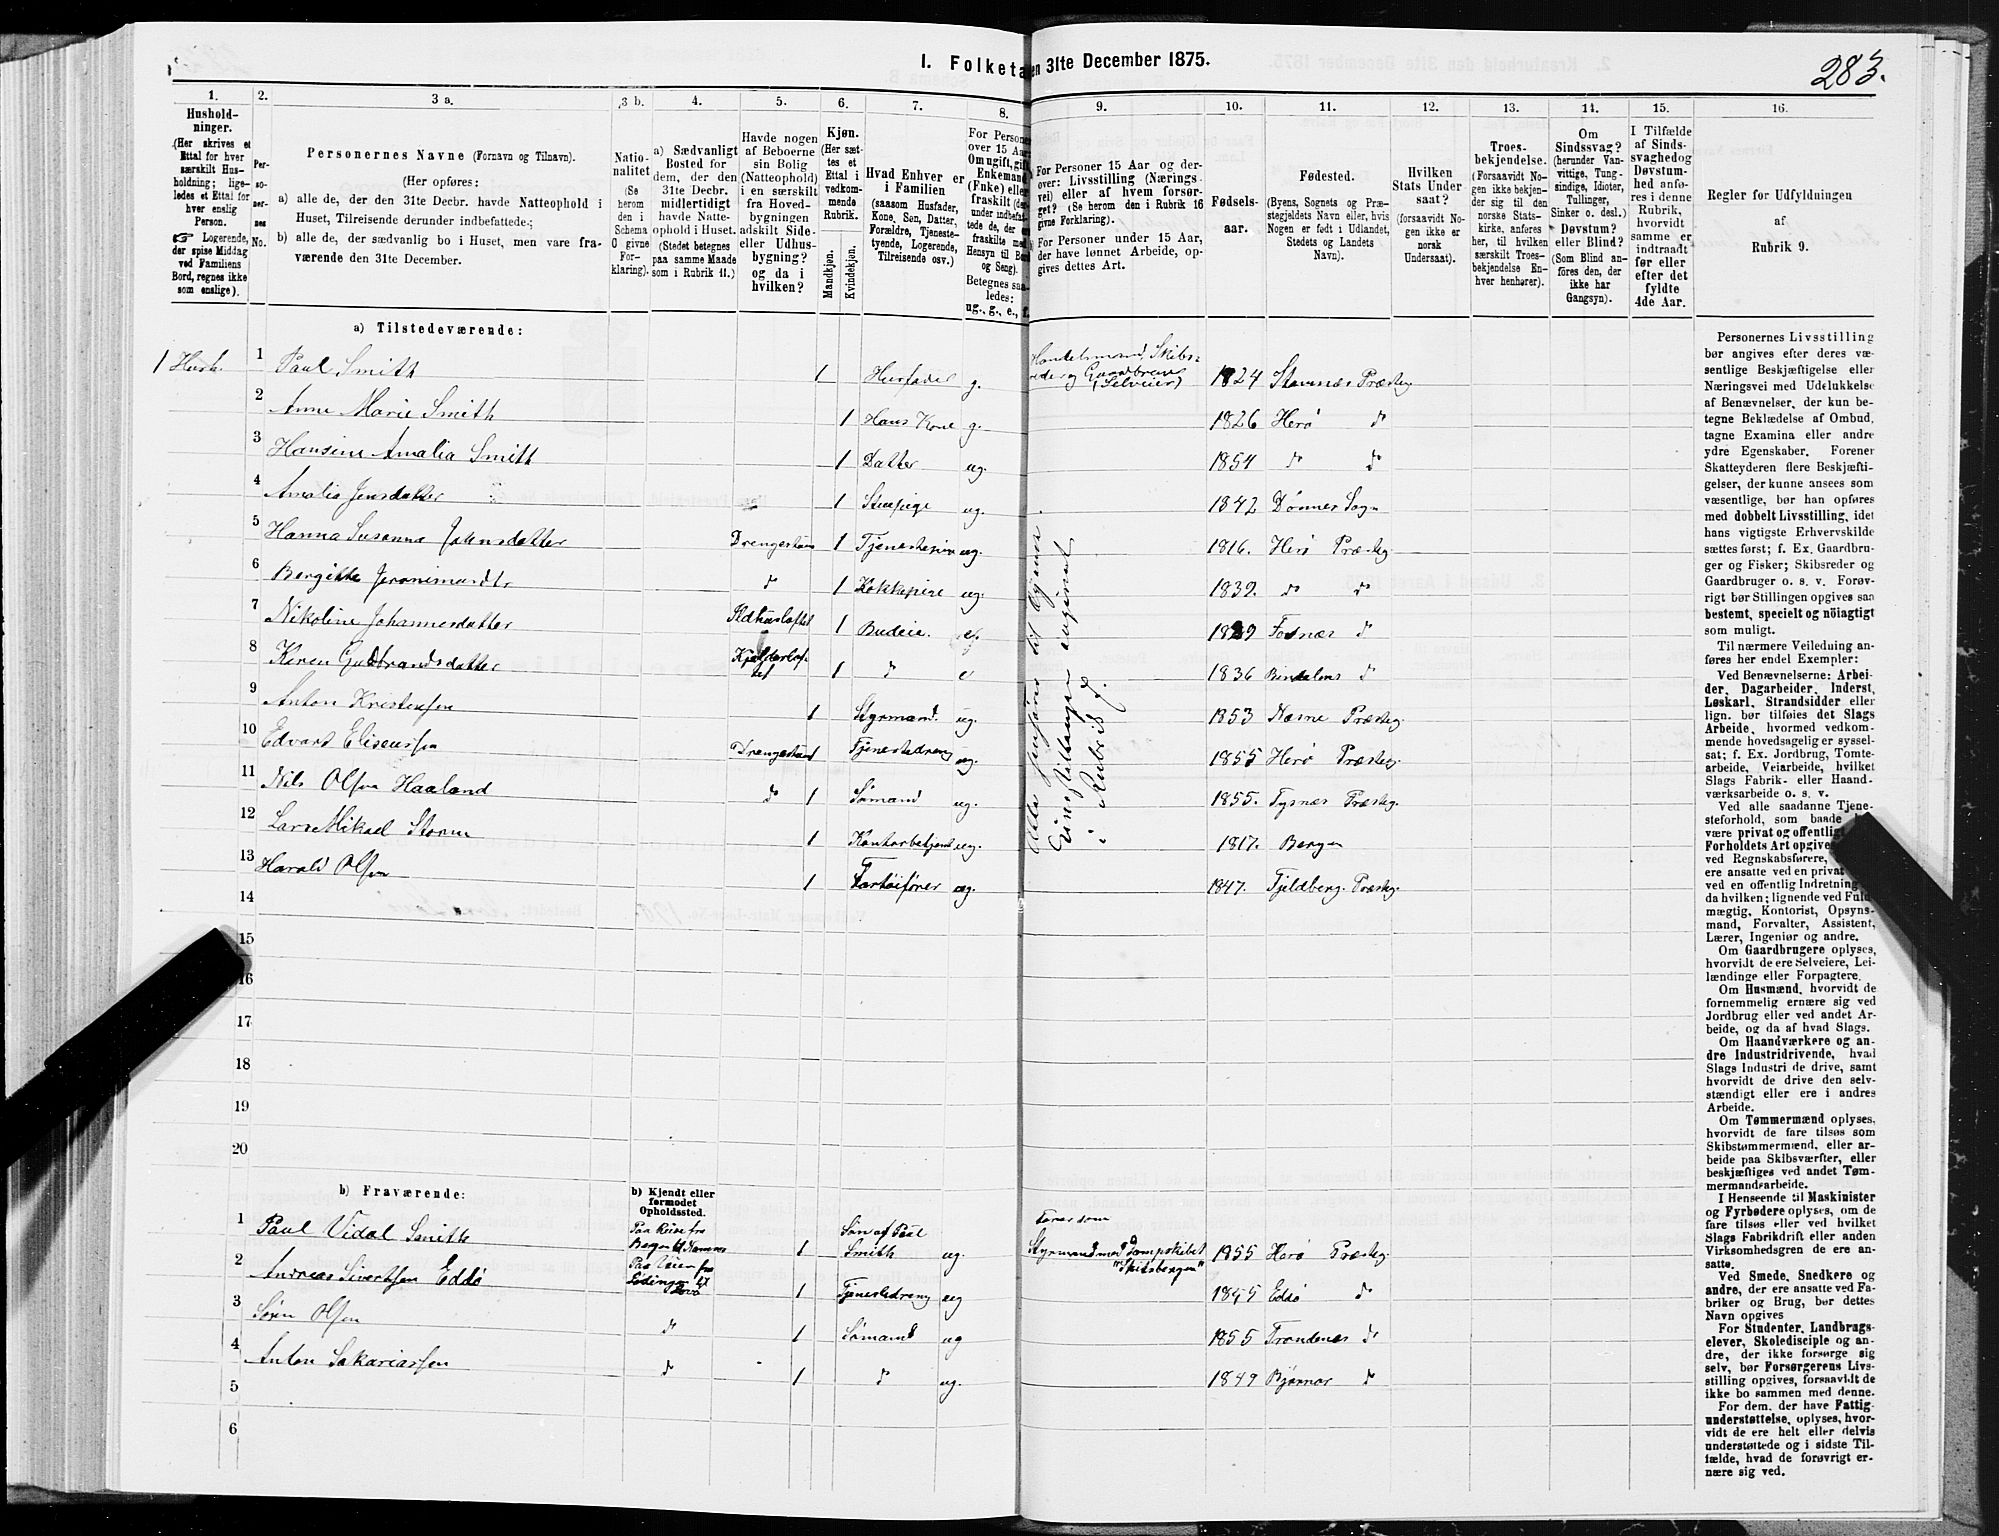 283.
1. Folketa en 31te December 1875.
1. 2. 3 a. 3 b. 4. 5. 6. 7. 8. 9. 10. 11. 12. 13. 14. 15. 16.
Hushold-
ninger.
(Her skrives et
Ettal for hver
særskilt Hus-
holdning; lige-
ledes et Ettal for
hver enslig
Person.
☞ Logerende,
der spise Middag
ved Familiens
Bord, regnes ikke
som enslige).
Per-
so-
ner-
nes
No.
Personernes Navne (Fornavn og Tilnavn).
(Her opføres:
a) alle de, der den 31te Decbr. havde Natteophold i
Huset, Tilreisende derunder indbefattede;
b) alle de, der sædvanlig bo i Huset, men vare fra-
værende den 31te December.
Natio-
nalitet
(Se
herom
den i
Schema
O givne
For-
klaring).
a) Sædvanligt
Bosted for
dem, der den
31te Decbr.
midlertidigt
havde Natte-
ophold i Huset.
(Stedet betegnes
paa samme Maade
som i Rubrik 11.)
Havde nogen
af Beboerne
sin Bolig
(Natteophold)
i en særskilt
fra Hoved-
bygningen
adskilt Side-
eller Udhus-
bygning?
og da i
hvilken?
Kjøn.
(Her sæt-
tes et
Ettal i
vedkom-
mende
Rubrik.
Mandkjøn.
Kvindekjøn.
Hvad Enhver er
i Familien
(saasom Husfader,
Kone, Søn, Datter,
Forældre, Tjeneste-
tyende, Logerende,
Tilreisende osv.)
For Personer
over 15 Aar
Om ugift, gift,
Enkemand
(Enke) eller
fraskilt (der-
under indbefat-
tede de, der ere
fraskilte med
Hensyn til Bord
og Seng).
Betegnes saa-
ledes:
ug., g., e., f.
For Personer 15 Aar og der-
over: Livsstilling (Nærings-
vei) eller af hvem forsør-
get? (Se herom den i Rubrik 16
givne Forklaring).
For Personer under 15 Aar,
der have lønnet Arbeide, op-
gives dettes Art.
Fødsels-
aar.
Fødested.
(Byens, Sognets og Præ-
stegjeldets Navn eller, hvis
Nogen er født i Udlandet,
Stedets og Landets
Navn).
Hvilken
Stats Under-
saat?
(forsaavidt No-
gen ikke er
norsk
Undersaat).
Troes-
bekjendelse.
(Forsaavidt No-
gen ikke bekjen-
der sig til den
norske Stats-
kirke, anføres
her, til hvilken
særskilt Troes-
bekjendelse En-
hver henhører).
Om
Sindssvag?
(herunder Van-
vittige, Tung-
sindige, Idioter,
Tullinger,
Sinker o. desl.)
Døvstum?
eller Blind?
(Som Blind an-
føres den, der
ikke har
Gangsyn).
I Tilfælde
af Sinds-
svaghed og
Døvstum-
hed anfø-
res i denne
Rubrik,
hvorvidt
samme er
indtraadt
før eller
efter det
fyldte
4de Aar.
Regler for Udfyldningen
af
Rubrik 9.
a) Tilstedeværende:
1 Hush. 1 Paul Smith 1 Husfader g. Handelsmand, Skibs-
reder og Gaardbruger (Selveier) 1824 Stamnæs Præsteg
2 Anne Marie Smith 1 Hans Kone g. 1826 Herø d
3 Hansine Amalia Smith 1 Datter ug. 1854 d d
4 Amalia Jensdatter 1 Stuepige ug. 1842 Dønnes Sogn
5 Hanna Susanna Johnsdatter Drengestuen 1 Tjenestepige ug. 1816. Herø Præsteg
6 Bergitte Jeronimusdtr d 1 Kokkepige ug. 1832. d d
7 Nikoline Johannesdatter Ildhusloftet 1 Budeie. e. 1829 Fosnæs d
8 Keren Guldbrandsdatter Kjelderlof-
tet 1 d e 1836 Bindalens d
9 Anton Kristensen 1 Styrmand. ug. 1853 Næsne Præsteg.
10 Edvart Eliseussen Drengestuen Tjenestedreng ug. 1855 Herø Præsteg.
11 Nils Olsen Haaland d 1 Sømand ug. 1855. Tysnæs Præsteg.
12 Lars Mikael Storm 1 Kontorbetjent ug. 1817. Bergen
13 Harald Olsen 1 Fartøifører ug. 1847. Tjeldberg. Præsteg.
Livsstillingen angivet
i Rubrik 7.
14
15
16
17
18
19
20
b) Fraværende:
b) Kjendt eller
formodet
Opholdssted.
1 Paul Vidal Smith Paa Reise fra
Bergen til 1 Søn af Paul
Smith ug. Farer som
Styrmand med Dampskibet
1855 Herø Præsteg.
2 Andreas Sivertsen Eddø 1 Tjenestedreng ug 1845 Eddø d
3 Søren Olsen d 1 Sømand ug 1855 Trondenæs d
4 Anton Sakariassen d 1 d ug. 1849 Bjørnør d
5
6
Personernes Livsstilling
bør angives efter deres væ-
sentlige Beskjæftigelse eller
Næringsvei med Udelukkelse
af Benævnelser, der kun be-
tegne Beklædelse af Ombud,
tagne Examina eller andre
ydre Egenskaber. Forener
Skatteyderen flere Beskjæfti-
gelser, der kunne ansees som
væsentlige, bør han opføres
med dobbelt Livsstilling, idet
hans vigtigste Erhvervskilde
sættes først; f. Ex. Gaardbru-
ger og Fisker; Skibsreder og
Gaardbruger o. s. v. Forøv-
rigt bør Stillingen opgives saa
bestemt, specielt og nöiagtigt
som muligt.
Til nærmere Veiledning an-
føres her endel Exempler:
Ved Benævnelserne: Arbei-
der, Dagarbeider, Inderst,
Løskarl, Strandsidder eller
lign. bør tilføies det Slags
Arbeide, hvormed vedkom-
mende hovedsagelig er syssel-
sat; f. Ex. Jordbrug, Tomte-
arbeide, Veiarbeide, hvilket
Slags Fabrik- eller Haand-
værksarbeide o. s. v.
Ved alle saadanne Tjene-
steforhold, som baade
være privat og offentligt
Forholdets Art opgives
ved Regnskabsførere,
ere ansatte ved en privat
ved en offentlig Indretning
da hvilken; lignende ved Fuld-
mægtig, Kontorist, Opsyns-
mand, Forvalter, Assistent,
Lærer, Ingeniør og andre.
Om Gaardbrugere oplyses,
hvorvidt de ere Selveiere, Lei-
lændinge eller Forpagtere.
Om Husmænd, hvorvidt de
fornemmelig ernære sig ved
Jordbrug eller ved andet Ar-
beide, og da af hvad Slags.
Om Haandværkere og an-
dre Industridrivende, hvad
Slags Industri de drive, samt
hvorvidt de drive den selv-
stændigt eller ere i andres
Arbeide.
Om Tømmermænd oplyses,
hvorvidt de fare tilsøs som
Skibstømmermænd, eller ar-
beide paa Skibsværfter, eller
beskjæftiges ved andet Tøm-
mermandsarbeide.
I Henseende til Maskinister
og Fyrbødere oplyses, om de
fare tilsøs eller ved hvilket
Slags Fabrikdrift eller anden
Virksomhedsgren de ere an-
satte.
Ved Smede, Snedkere og
andre, der ere ansatte ved Fa-
briker og Brug, bør dettes
Navn opgives
For Studenter, Landbrugs-
elever, Skoledisciple og an-
dre, der ikke forsørge sig
selv, bør Forsørgerens Livs-
stilling opgives, forsaavidt de
ikke bo sammen med denne.
For dem, der have Fattig-
understøttelse, oplyses, hvor-
vidt de ere helt eller delvis
understøttede og i sidste Til-
fælde, hvad de forøvrigt er-
nære sig ved.